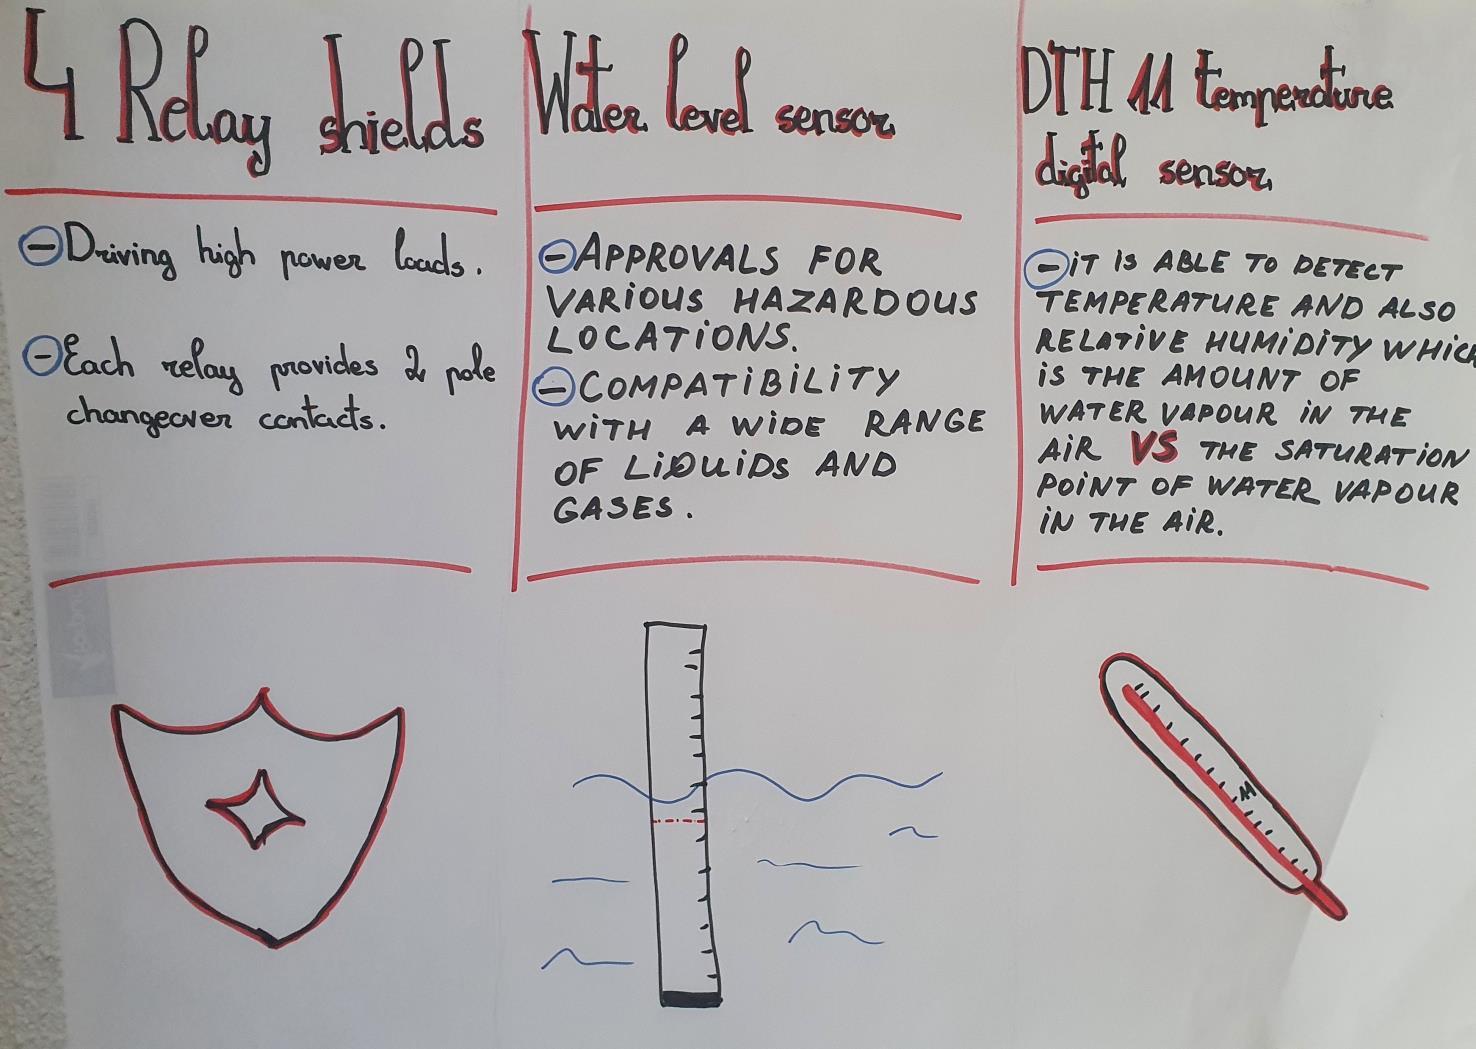 4 Relay shields
⊖ Driving high power loads.
⊖ Each relay provides 2 pole
changeover contacts.
Water level sensor
⊖ APPROVALS FOR
VARIOUS HAZARDOUS
LOCATIONS.
⊖ COMPATIBILITY
WITH A WIDE RANGE
OF LIQUIDS AND
GASES.
DTH 11 temperature
digital sensor
⊖ IT IS ABLE TO DETECT
TEMPERATURE AND ALSO
RELATIVE HUMIDITY WHICH
IS THE AMOUNT OF
WATER VAPOUR IN THE
AIR VS THE SATURATION
POINT OF WATER VAPOUR
IN THE AIR.